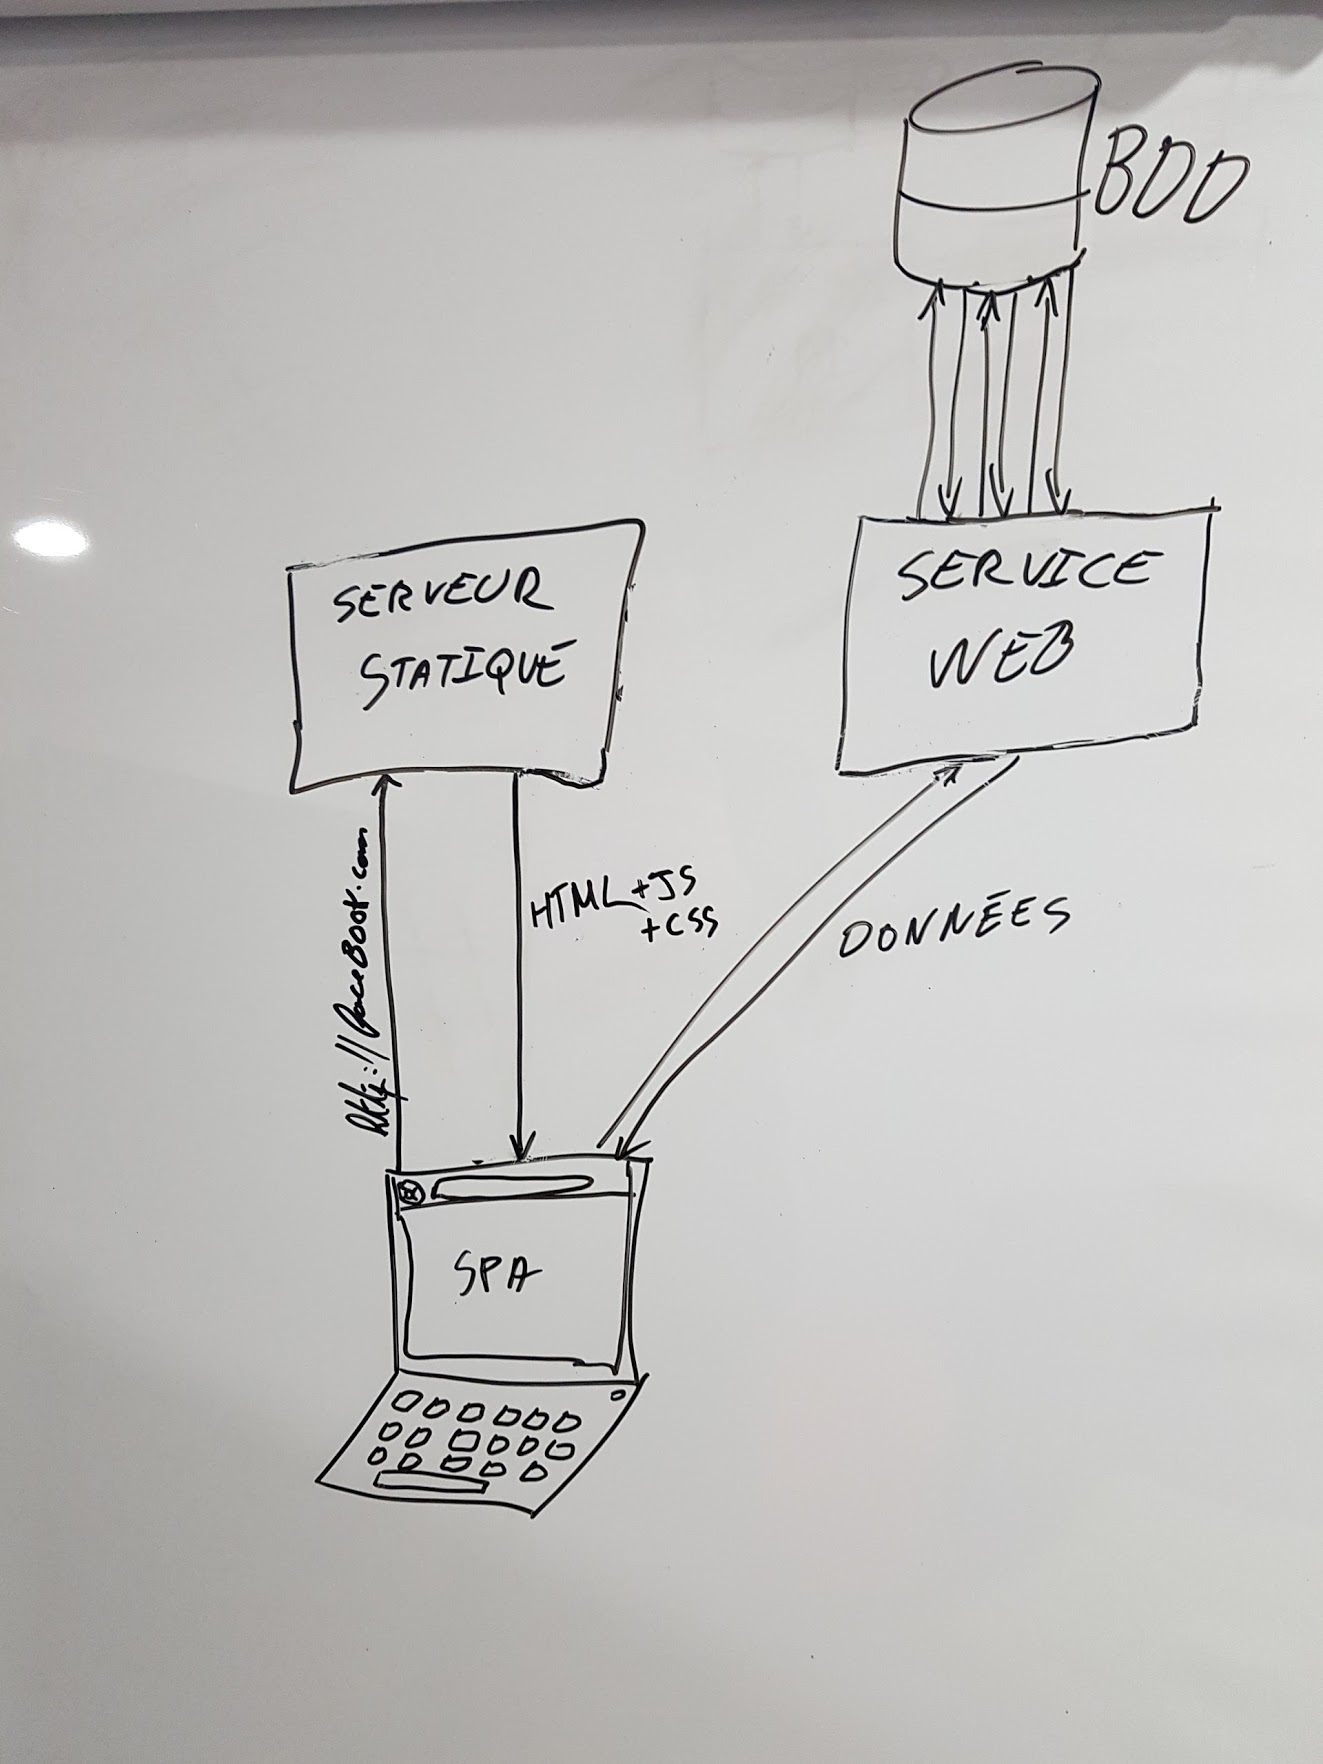 BDD
SERVEUR
STATIQUE
SERVICE
WEB
http://faceBook.com
HTML+JS
+CSS
DONNÉES
SPA